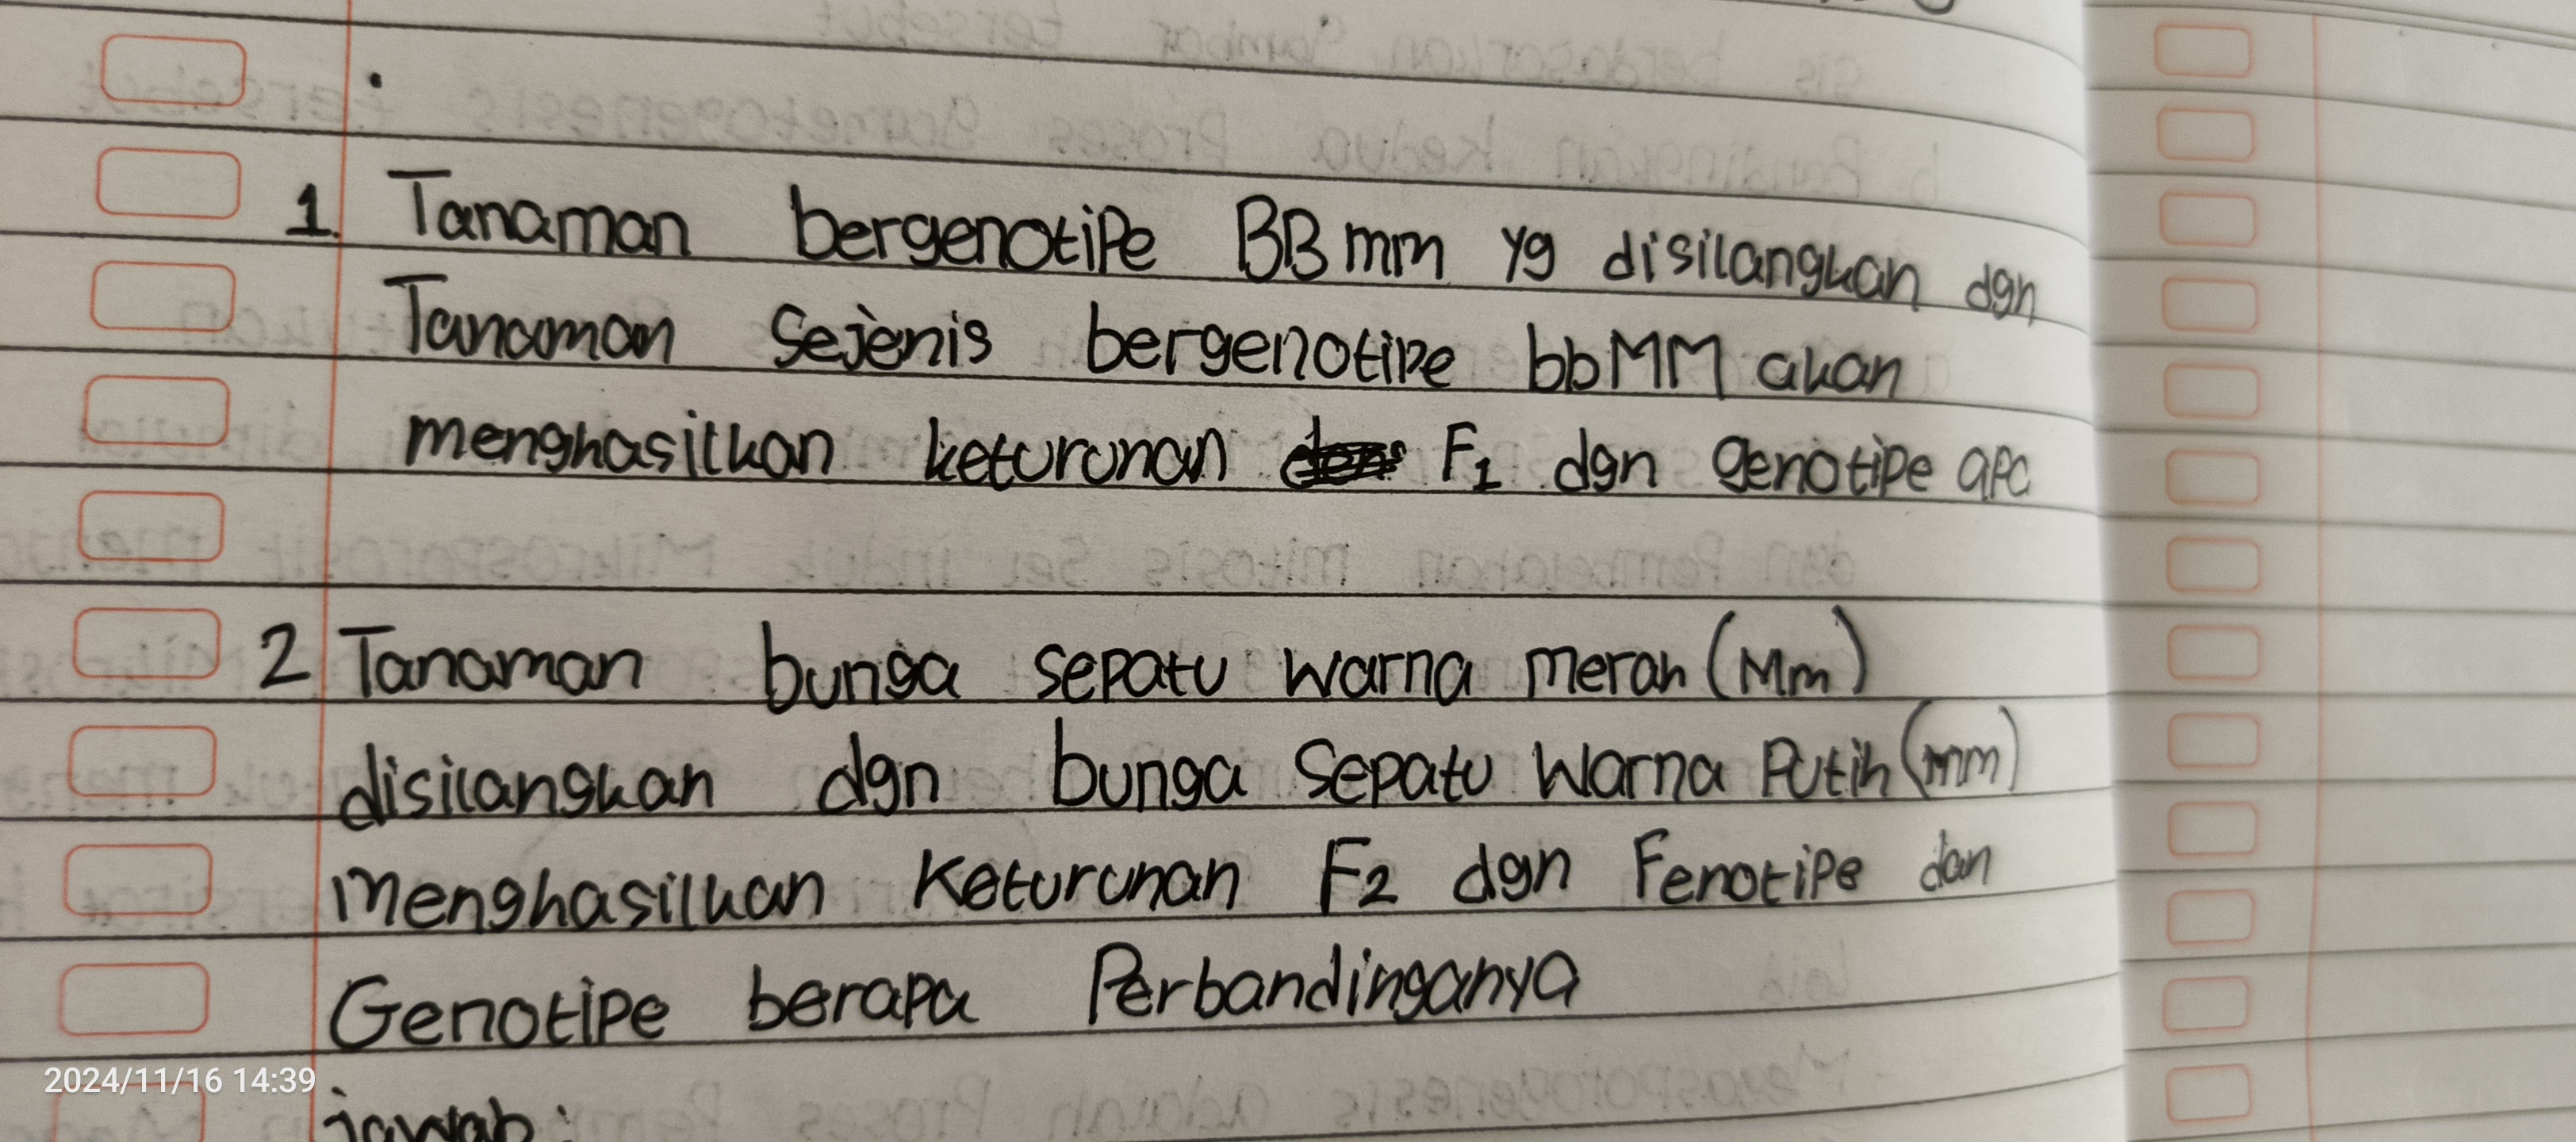 1. Tanaman bergenotipe BBmm yg disilangkan dgn
Tanaman Sejenis bergenotipe bbMM akan
menghasilkan keturunan F1 dgn genotipe apa
2 Tanaman bunga sepatu warna merah (Mm)
disilangkan dgn bunga sepatu warna Putih (mm)
menghasilkan Keturunan F2 dgn Fenotipe dan
Genotipe berapa Perbandinganya
2024/11/16 14:39
jawab: